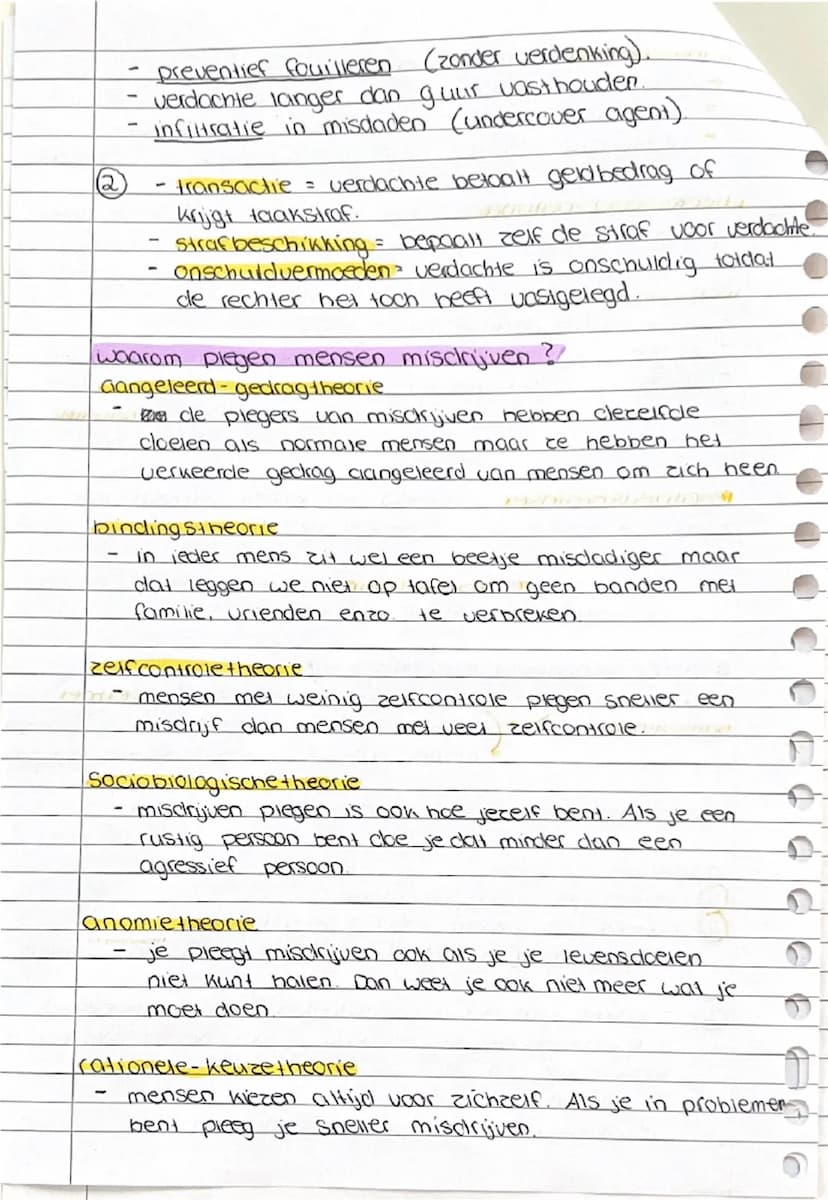 - preventief fouilleren (zonder verdenking).
- verdachte langer dan 9 uur vasthouden.
- infiltratie in misdaden (undercover agent)
② - transactie = verdachte betaalt geldbedrag of
krijgt taakstraf.
- strafbeschikking = bepaalt zelf de straf voor verdachte.
- onschuldvermoeden = verdachte is onschuldig totdat
de rechter het toch heeft vastgelegd.
waarom plegen mensen misdrijven?
aangeleerd-gedragtheorie
- de plegers van misdrijven hebben dezelfde
doelen als normale mensen maar ze hebben het
verkeerde gedrag aangeleerd van mensen om zich heen
bindingstheorie
- in ieder mens zit wel een beetje misdadiger maar
dat leggen we niet op tafel om geen banden met
familie, vrienden enzo. te verbreken.
zelfcontroletheorie
- mensen met weinig zelfcontrole plegen sneller een
misdrijf dan mensen met veel zelfcontrole.
sociobiologischetheorie
- misdrijven plegen is ook hoe jezelf bent. Als je een
rustig persoon bent doe je dat minder dan een
agressief persoon.
anomietheorie
- je pleegt misdrijven ook als je je levensdoelen
niet kunt halen. Dan weet je ook niet meer wat je
moet doen.
rationele-keuzetheorie
- mensen kiezen altijd voor zichzelf. Als je in problemen
bent pleeg je sneller misdrijven.